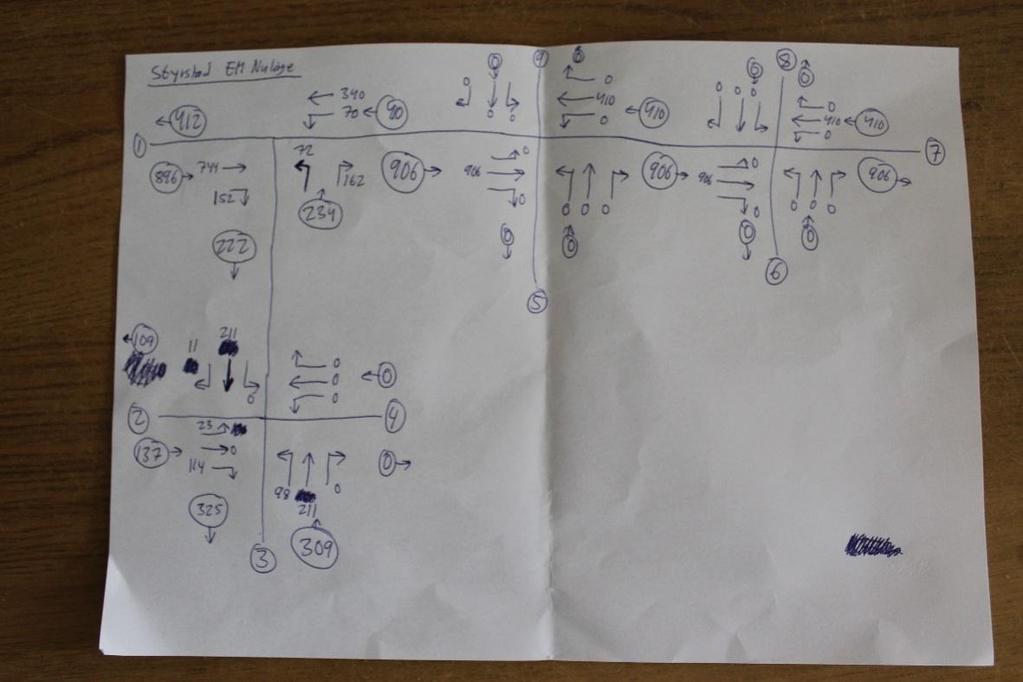 Styrstad EM Nuläge
9
0
8
0
0
0
0
0
0
0
0
0
0
412
340
70
410
410
0
410
0
410
0
410
0
1
7
896
744
152
72
162
234
906
906
0
0
0
0
0
0
906
906
0
0
0
0
0
0
906
222
5
6
109
11
211
0
0
0
0
0
2
4
137
23
0
114
98
211
0
0
325
309
3